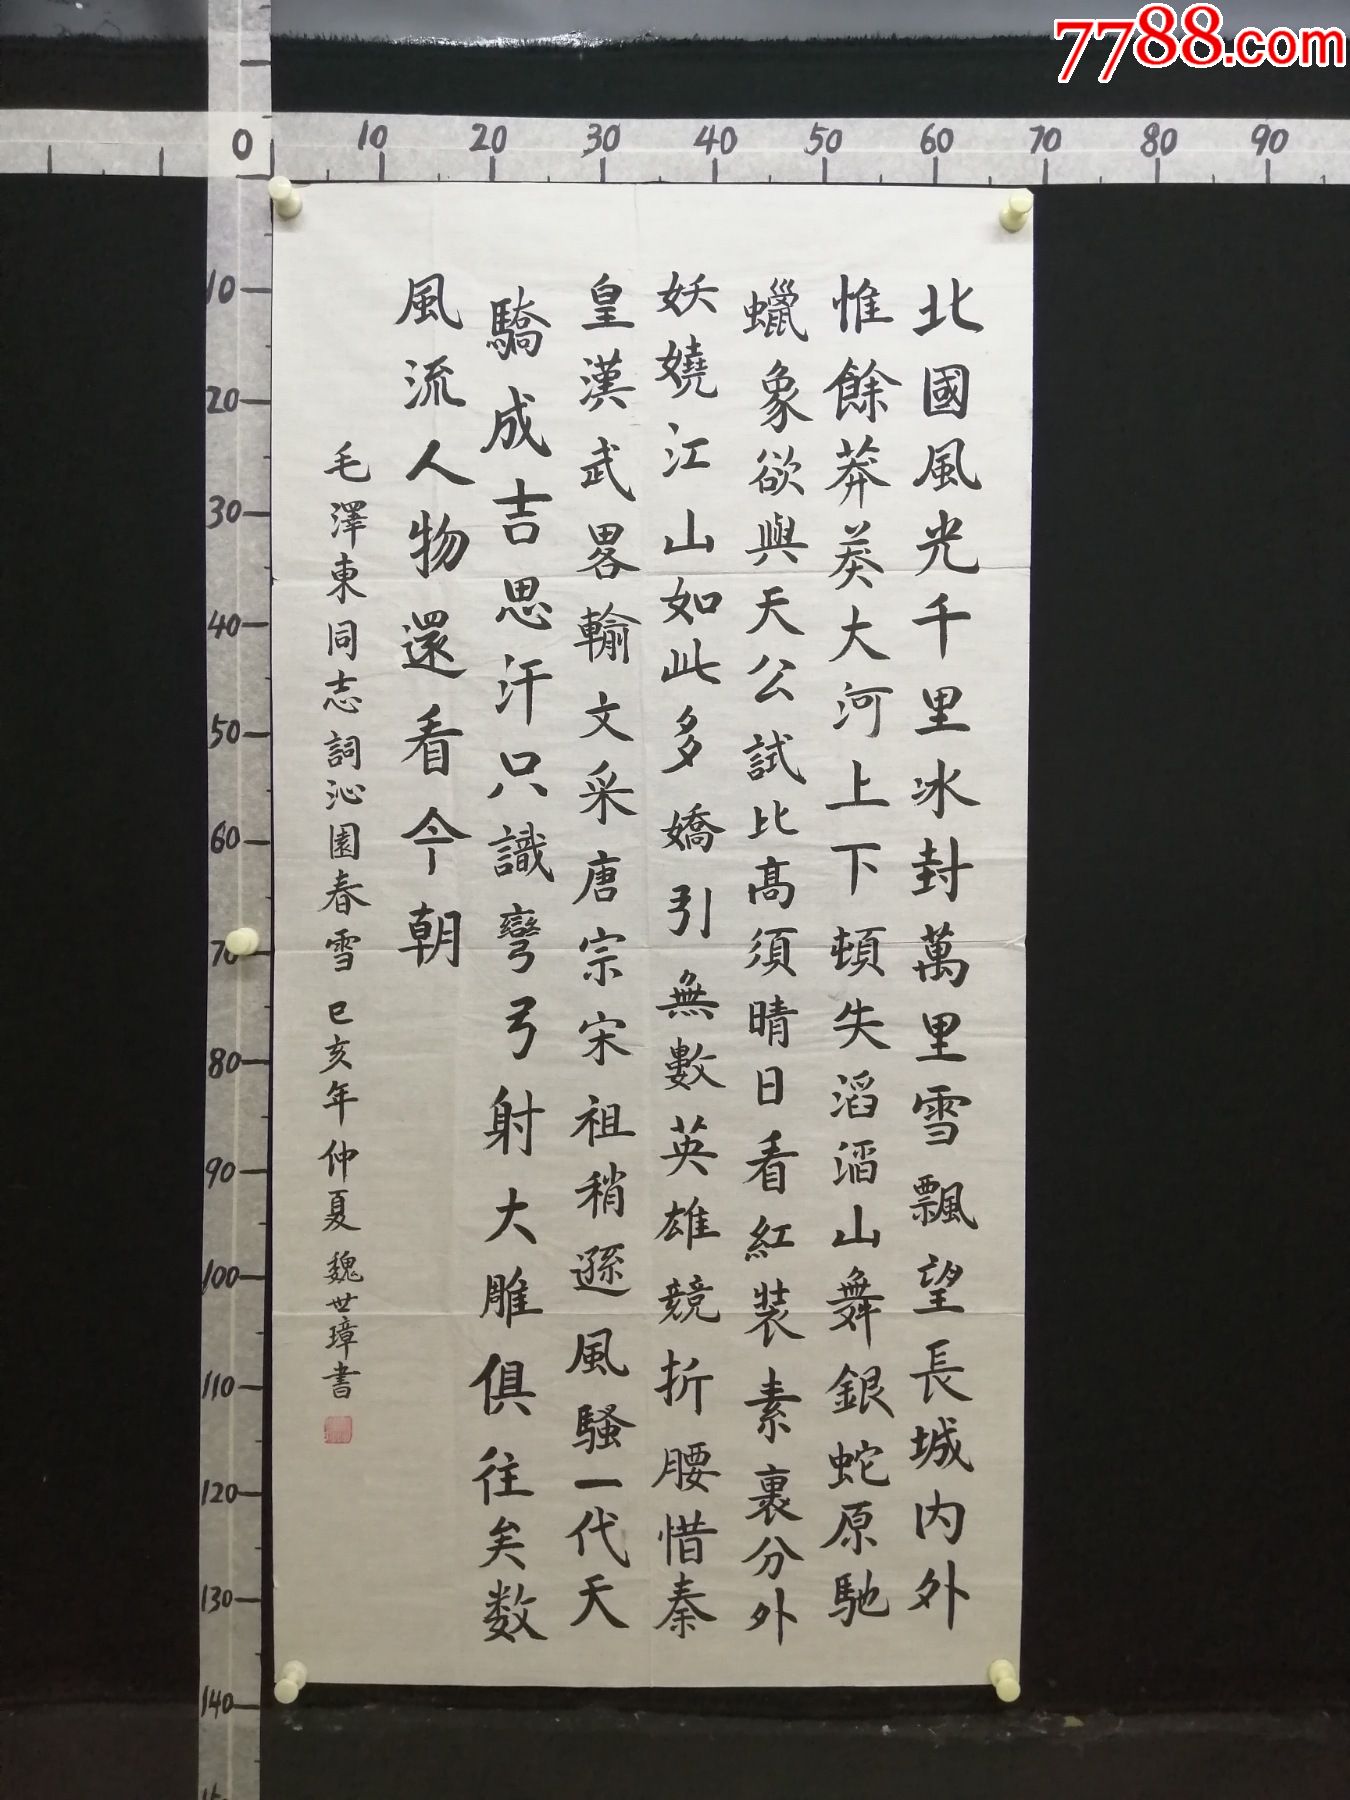 7788.com
0 10 20 30 40 50 60 70 80 90
10
20
30
40
50
60
70
80
90
100
110
120
130
140
北國風光千里冰封萬里雪飄望長城内外
惟餘莽莽大河上下頓失滔滔山舞銀蛇原馳
蠟象欲與天公試比高須晴日看紅裝素裹分外
妖嬈江山如此多嬌引無數英雄競折腰惜秦
皇漢武畧輸文采唐宗宋祖稍遜風騷一代天
驕成吉思汗只識彎弓射大雕俱往矣数
風流人物還看今朝
毛澤東同志詞沁園春雪 己亥年仲夏 魏世璋書